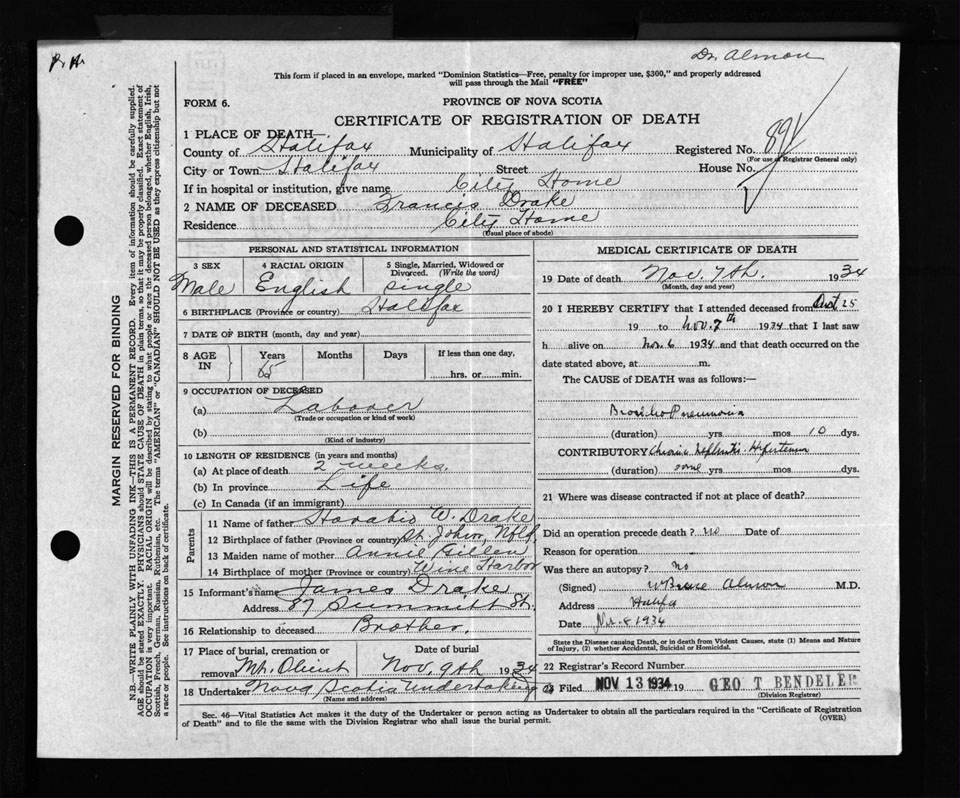 P. H.
Dr Almon
This form if placed in an envelope, marked "Dominion Statistics—Free, penalty for improper use, $300," and properly addressed
will pass through the Mail "FREE"
FORM 6.
PROVINCE OF NOVA SCOTIA
CERTIFICATE OF REGISTRATION OF DEATH
1 PLACE OF DEATH—
County of Halifax Municipality of Halifax Registered No. 891
(For use of Registrar General only)
City or Town Halifax Street House No.
If in hospital or institution, give name City Home
2 NAME OF DECEASED Francis Drake
Residence City Home
(Usual place of abode)
MARGIN RESERVED FOR BINDING
N.B.—WRITE PLAINLY WITH UNFADING INK—THIS IS A PERMANENT RECORD. Every item of information should be carefully supplied.
AGE should be stated EXACTLY. PHYSICIANS should STATE CAUSE OF DEATH in plain terms, so that it may be properly classified. Exact statement of
OCCUPATION is very important. RACIAL ORIGIN will be described by stating to what people or race the deceased person belonged, whether English, Irish,
Scottish, French, German, Russian, Ruthenian, etc. The terms "AMERICAN" or "CANADIAN" SHOULD NOT BE USED as they express citizenship but not
a race or people. See instructions on back of certificate.
PERSONAL AND STATISTICAL INFORMATION
3 SEX
Male
4 RACIAL ORIGIN
English
5 Single, Married, Widowed or
Divorced. (Write the word)
single
6 BIRTHPLACE (Province or country) Halifax
7 DATE OF BIRTH (month, day and year)
8 AGE IN
Years Months Days If less than one day,
65 hrs. or min.
9 OCCUPATION OF DECEASED
(a) Laborer
(Trade or occupation or kind of work)
(b)
(Kind of industry)
10 LENGTH OF RESIDENCE (in years and months)
(a) At place of death 2 weeks.
(b) In province Life
(c) In Canada (if an immigrant)
Parents
11 Name of father W. Drake
12 Birthplace of father (Province or country) St. John, Nfld.
13 Maiden name of mother Annie Gillen
14 Birthplace of mother (Province or country) Wine Harbor
15 Informant's name James Drake
Address 87 Summitt St.
16 Relationship to deceased Brother.
17 Place of burial, cremation or removal Mt. Olivet
Date of burial Nov. 9th 1934
18 Undertaker Nova Scotia Undertaking
(Name and address)
MEDICAL CERTIFICATE OF DEATH
19 Date of death Nov. 7th. 1934
(Month, day and year)
20 I HEREBY CERTIFY that I attended deceased from 25
19 to Nov. 7th 1934 that I last saw
h alive on Nov. 6 1934 and that death occurred on the
date stated above, at m.
The CAUSE of DEATH was as follows:—
Broncho Pneumonia
(duration) yrs. mos 10 dys.
CONTRIBUTORY Chronic Nephritis - Hypertension
(duration) some yrs mos dys.
21 Where was disease contracted if not at place of death?
Did an operation precede death? no Date of
Reason for operation
Was there an autopsy? no
(Signed) W Bruce Almon M.D.
Address Halifax
Date Nov. 8 1934
State the Disease causing Death, or in death from Violent Causes, state (1) Means and Nature
of Injury, (2) whether Accidental, Suicidal or Homicidal.
22 Registrar's Record Number
23 Filed NOV 13 1934 19 GEO T BENDELER
(Division Registrar)
Sec. 46—Vital Statistics Act makes it the duty of the Undertaker or person acting as Undertaker to obtain all the particulars required in the "Certificate of Registration
of Death" and to file the same with the Division Registrar who shall issue the burial permit.
(OVER)